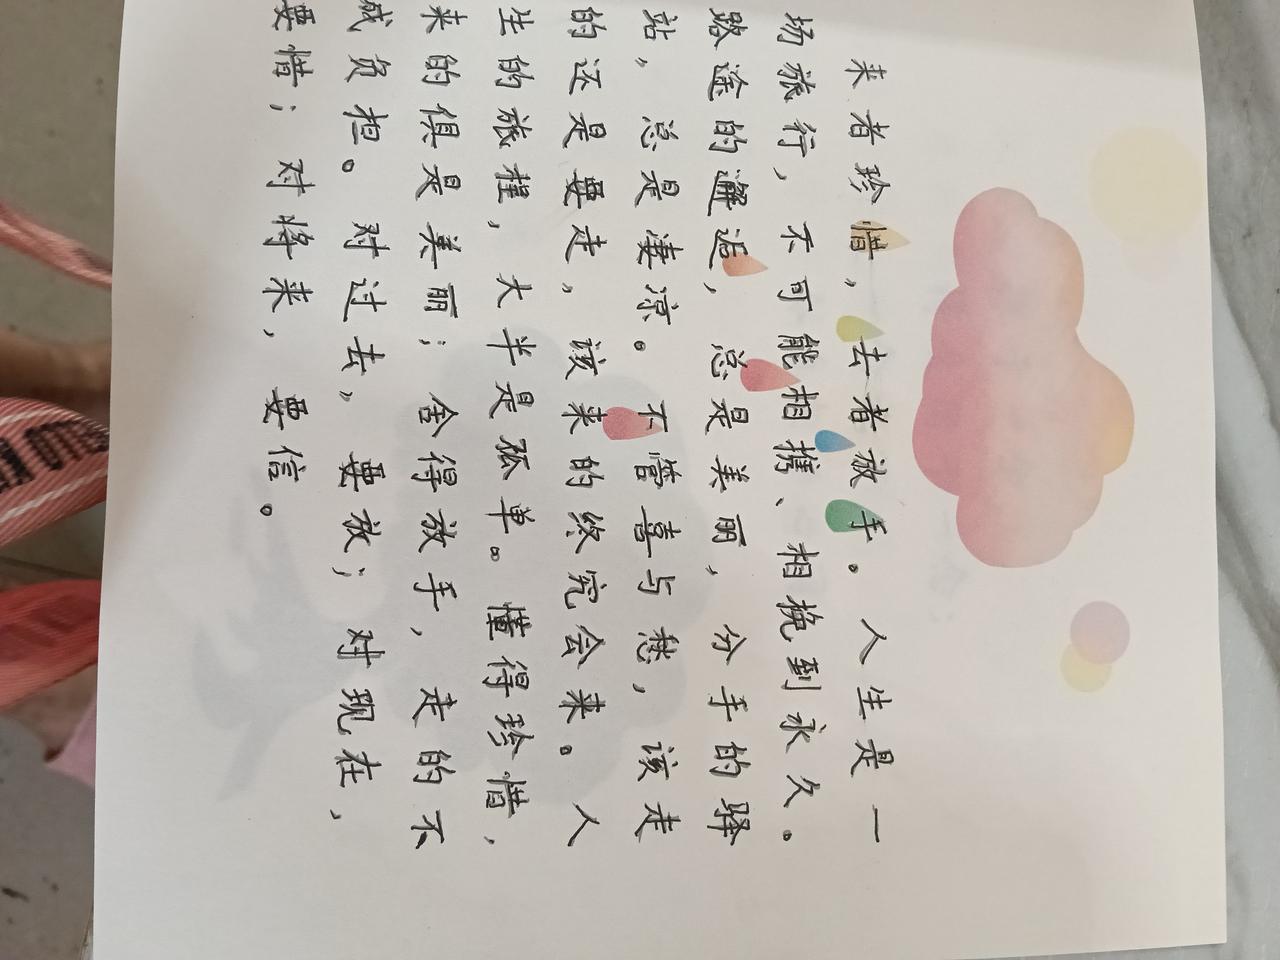 来者珍惜，去者放手。人生是一
场旅行，不可能相携、相挽到永久。
路途的邂逅，总是美丽，分手的驿
站，总是凄凉。不管喜与愁，该走
的还是要走，该来的终究会来。人
生的旅程，大半是孤单。懂得珍惜，
来的俱是美丽；舍得放手，走的不
成负担。对过去，要放；对现在，
要惜；对将来，要信。